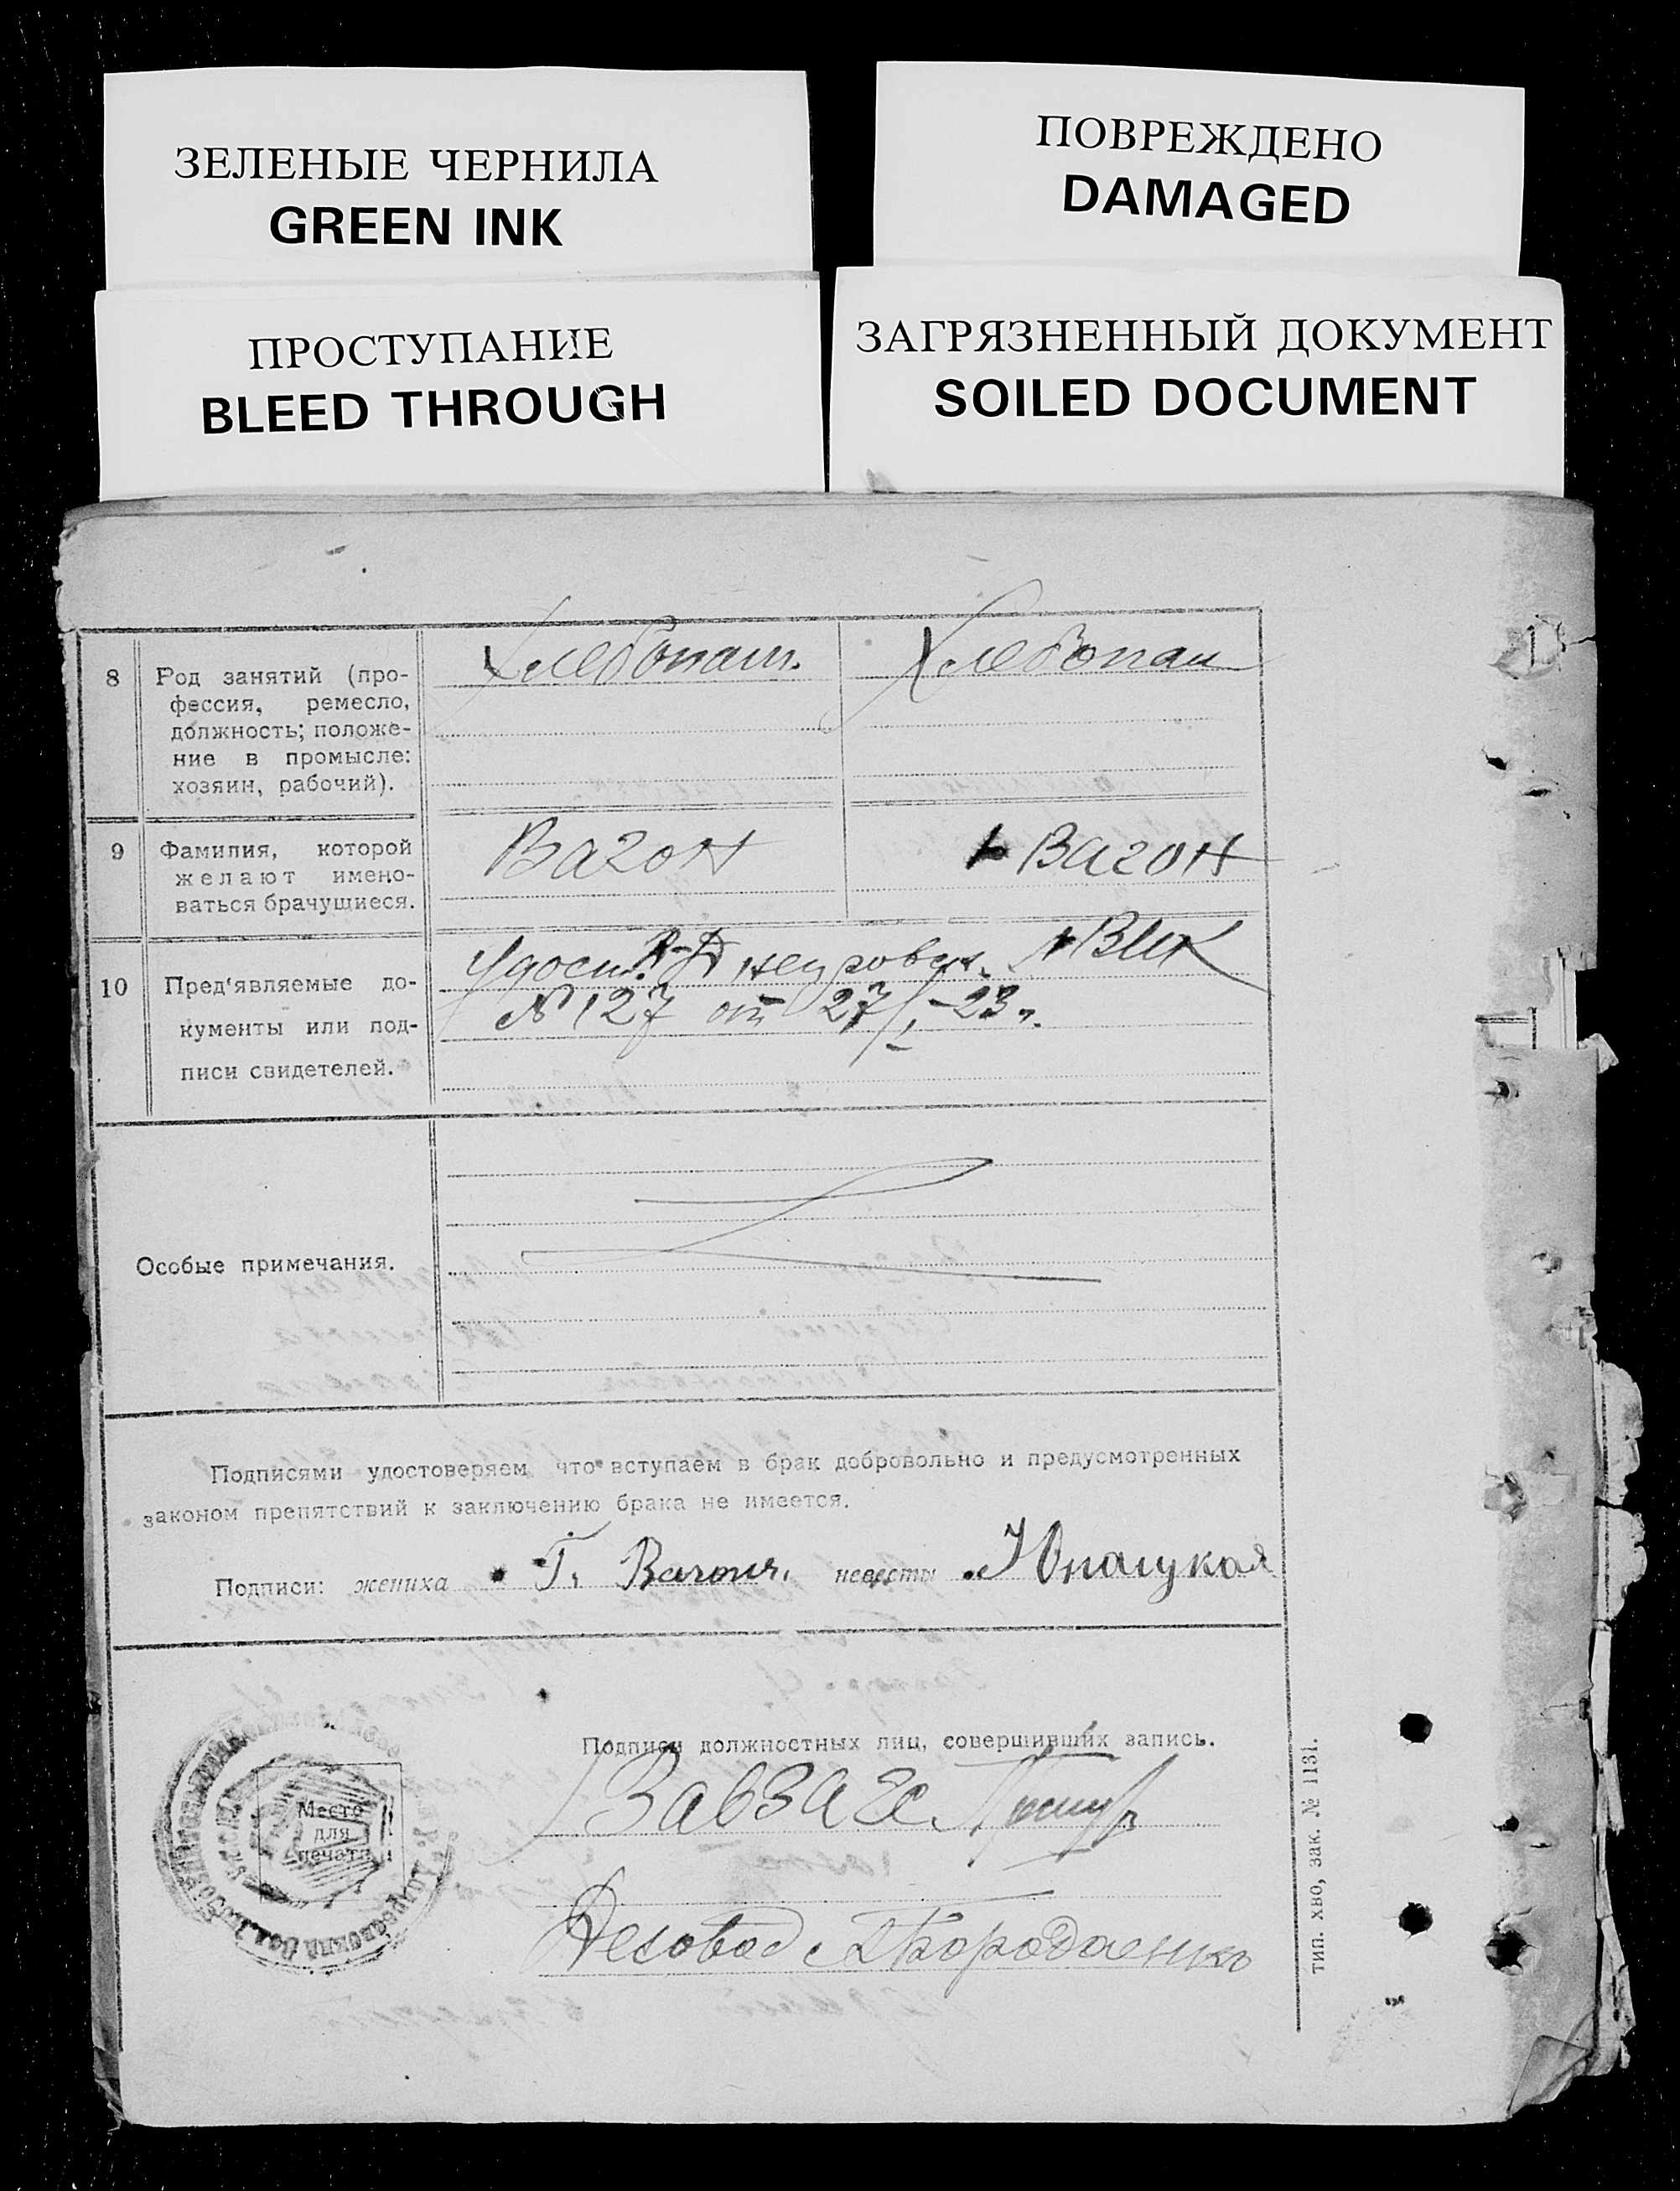 ЗЕЛЕНЫЕ ЧЕРНИЛА
GREEN INK
ПОВРЕЖДЕНО
DAMAGED
ПРОСТУПАНИЕ
BLEED THROUGH
ЗАГРЯЗНЕННЫЙ ДОКУМЕНТ
SOILED DOCUMENT
8
Род занятий (про-
фессия, ремесло,
должность; положе-
ние в промысле:
хозяин, рабочий).
Хлебопаш.
Хлебопаш
9
Фамилия, которой
желают имено-
ваться брачущиеся.
Вагон
Вагон
10
Пред‘являемые до-
кументы или под-
писи свидетелей.
Удост. ВИК
№ 127 от 27/I-23 г.
Особые примечания.
Подписями удостоверяем что вступаем в брак добровольно и предусмотренных
законом препятствий к заключению брака не имеется.
Подписи: жениха Г. Вагон. невесты
Подписи должностных лиц, совершивших запись.
ЗавЗАГС
Место
для
печати
Деловод Бородаенко
тип. ХВО, зак. № 1131.